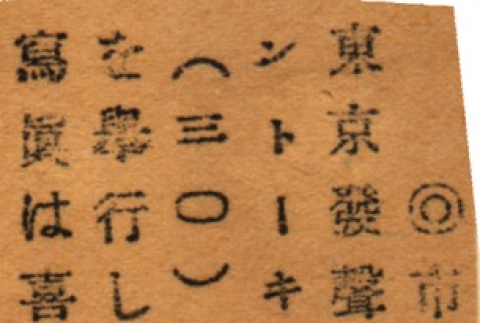 ◎市
東京發聲
ントーキ
(三〇)
を擧行し
寫眞は喜